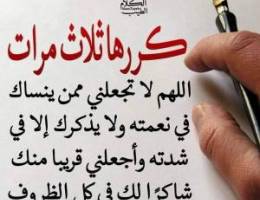 الكلام
الطيب
كررها ثلاث مرات
اللهم لا تجعلني ممن ينساك
في نعمته ولا يذكرك إلا في
شدته وأجعلني قريبا منك
شاكرًا لك في كل الظروف